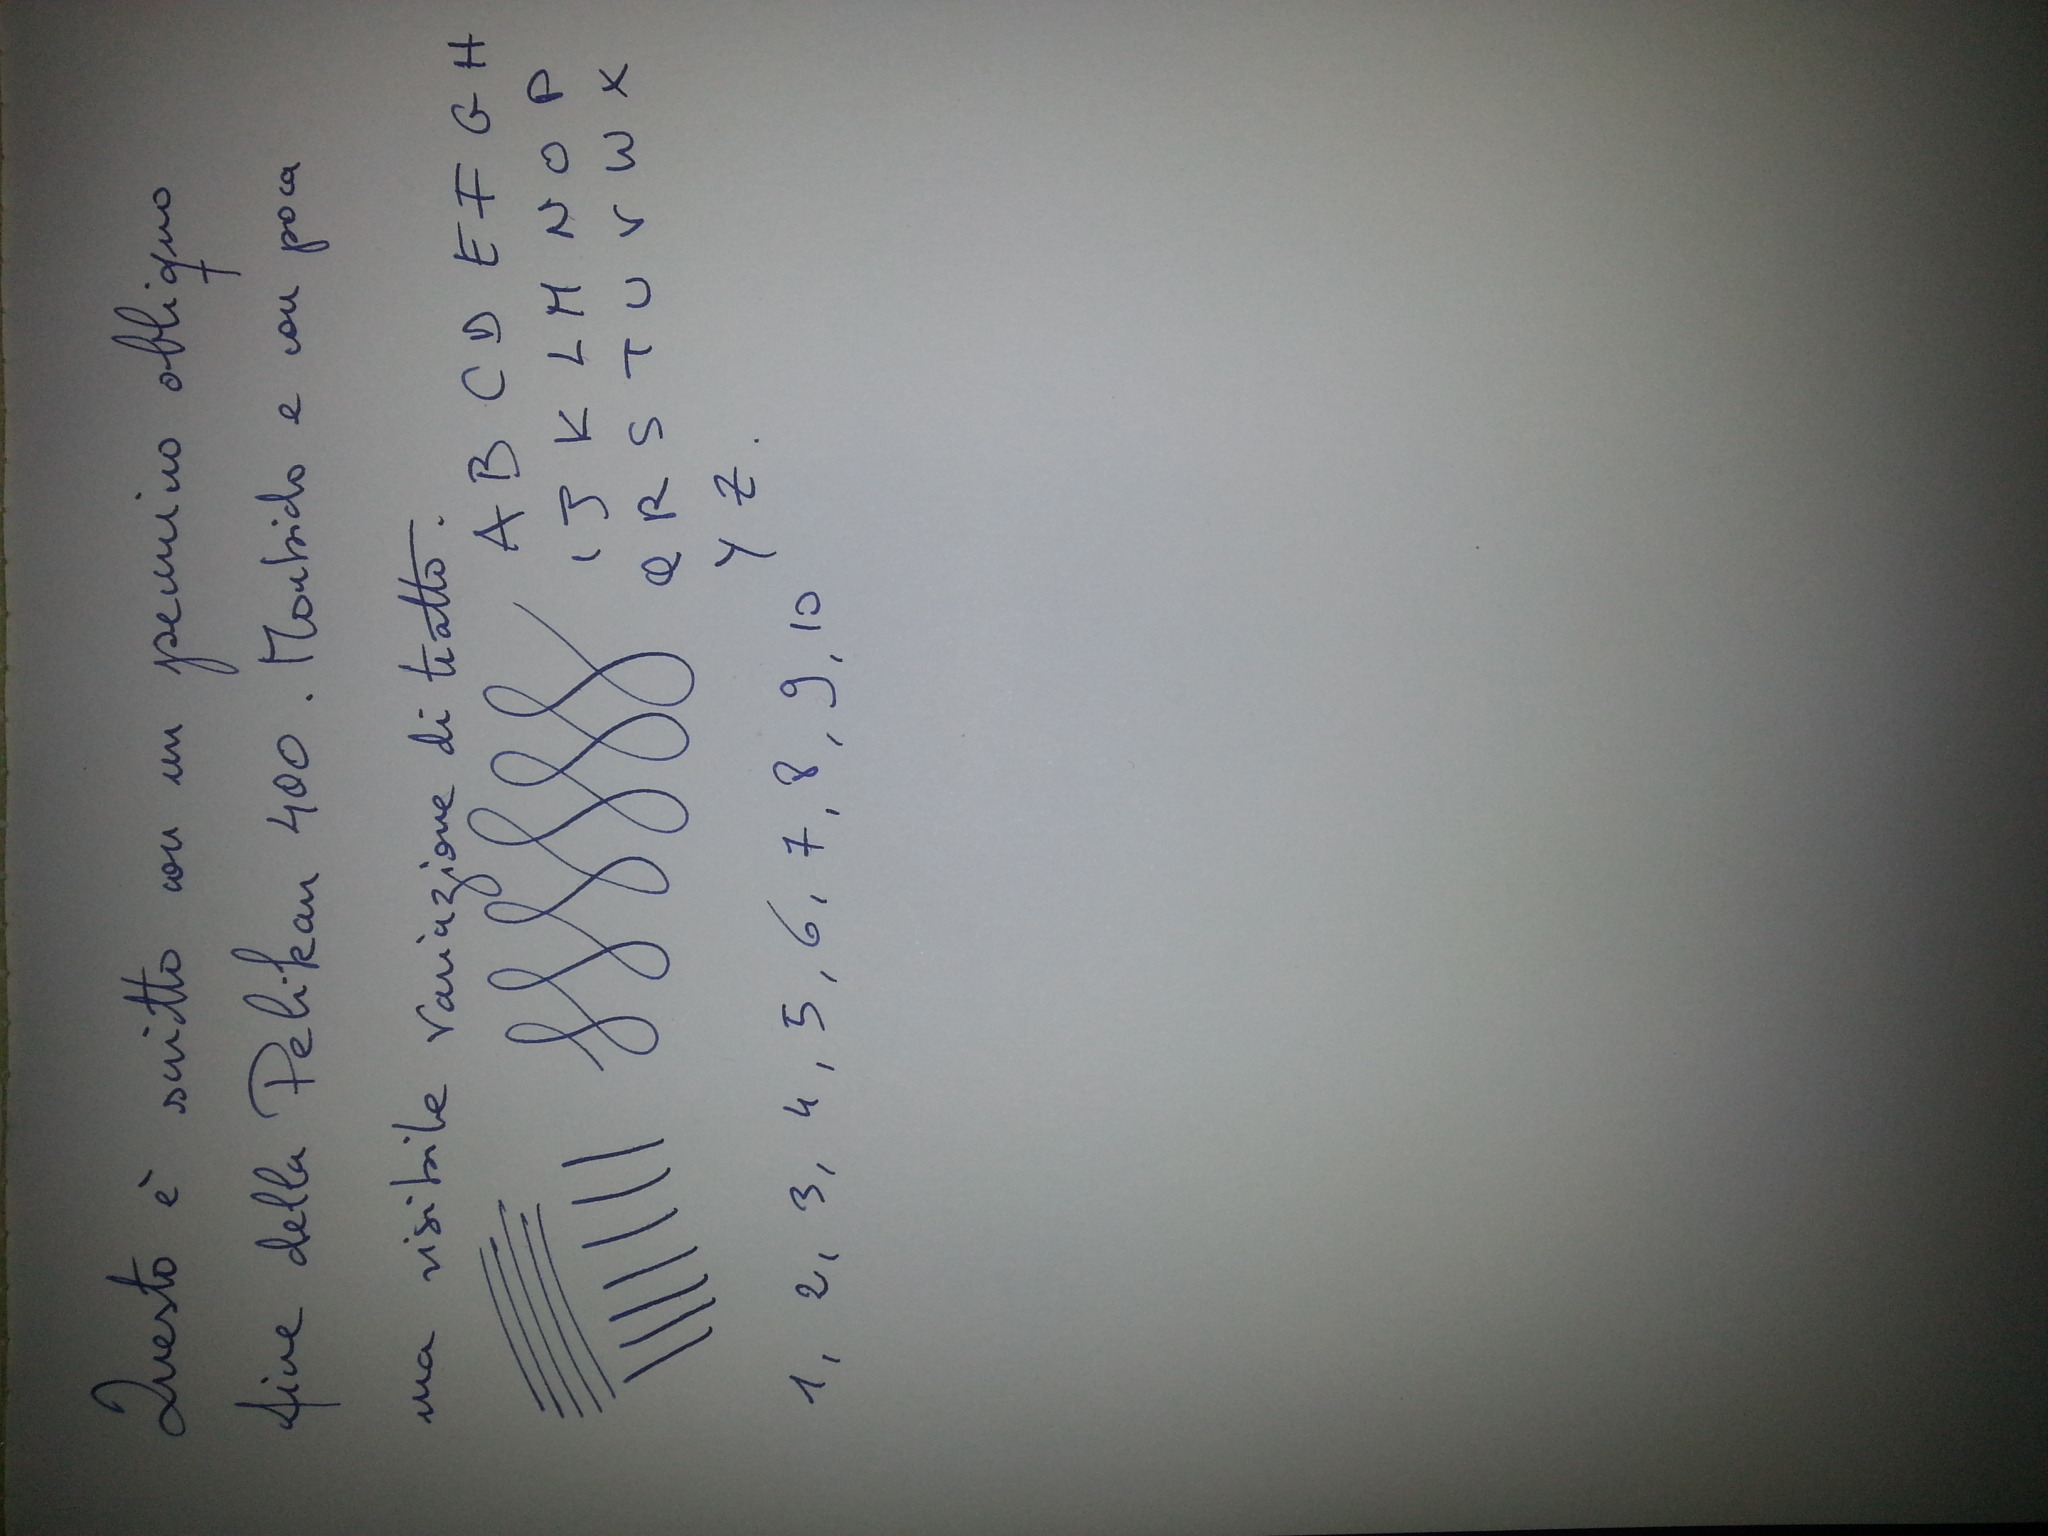 Questo è scritto con un pennino obliquo
fine della Pelikan 400. Morbido e con poca
ma visibile variazione di tratto.
A B C D E F G H
I J K L M N O P
Q R S T U V W X
Y Z.
1, 2, 3, 4, 5, 6, 7, 8, 9, 10